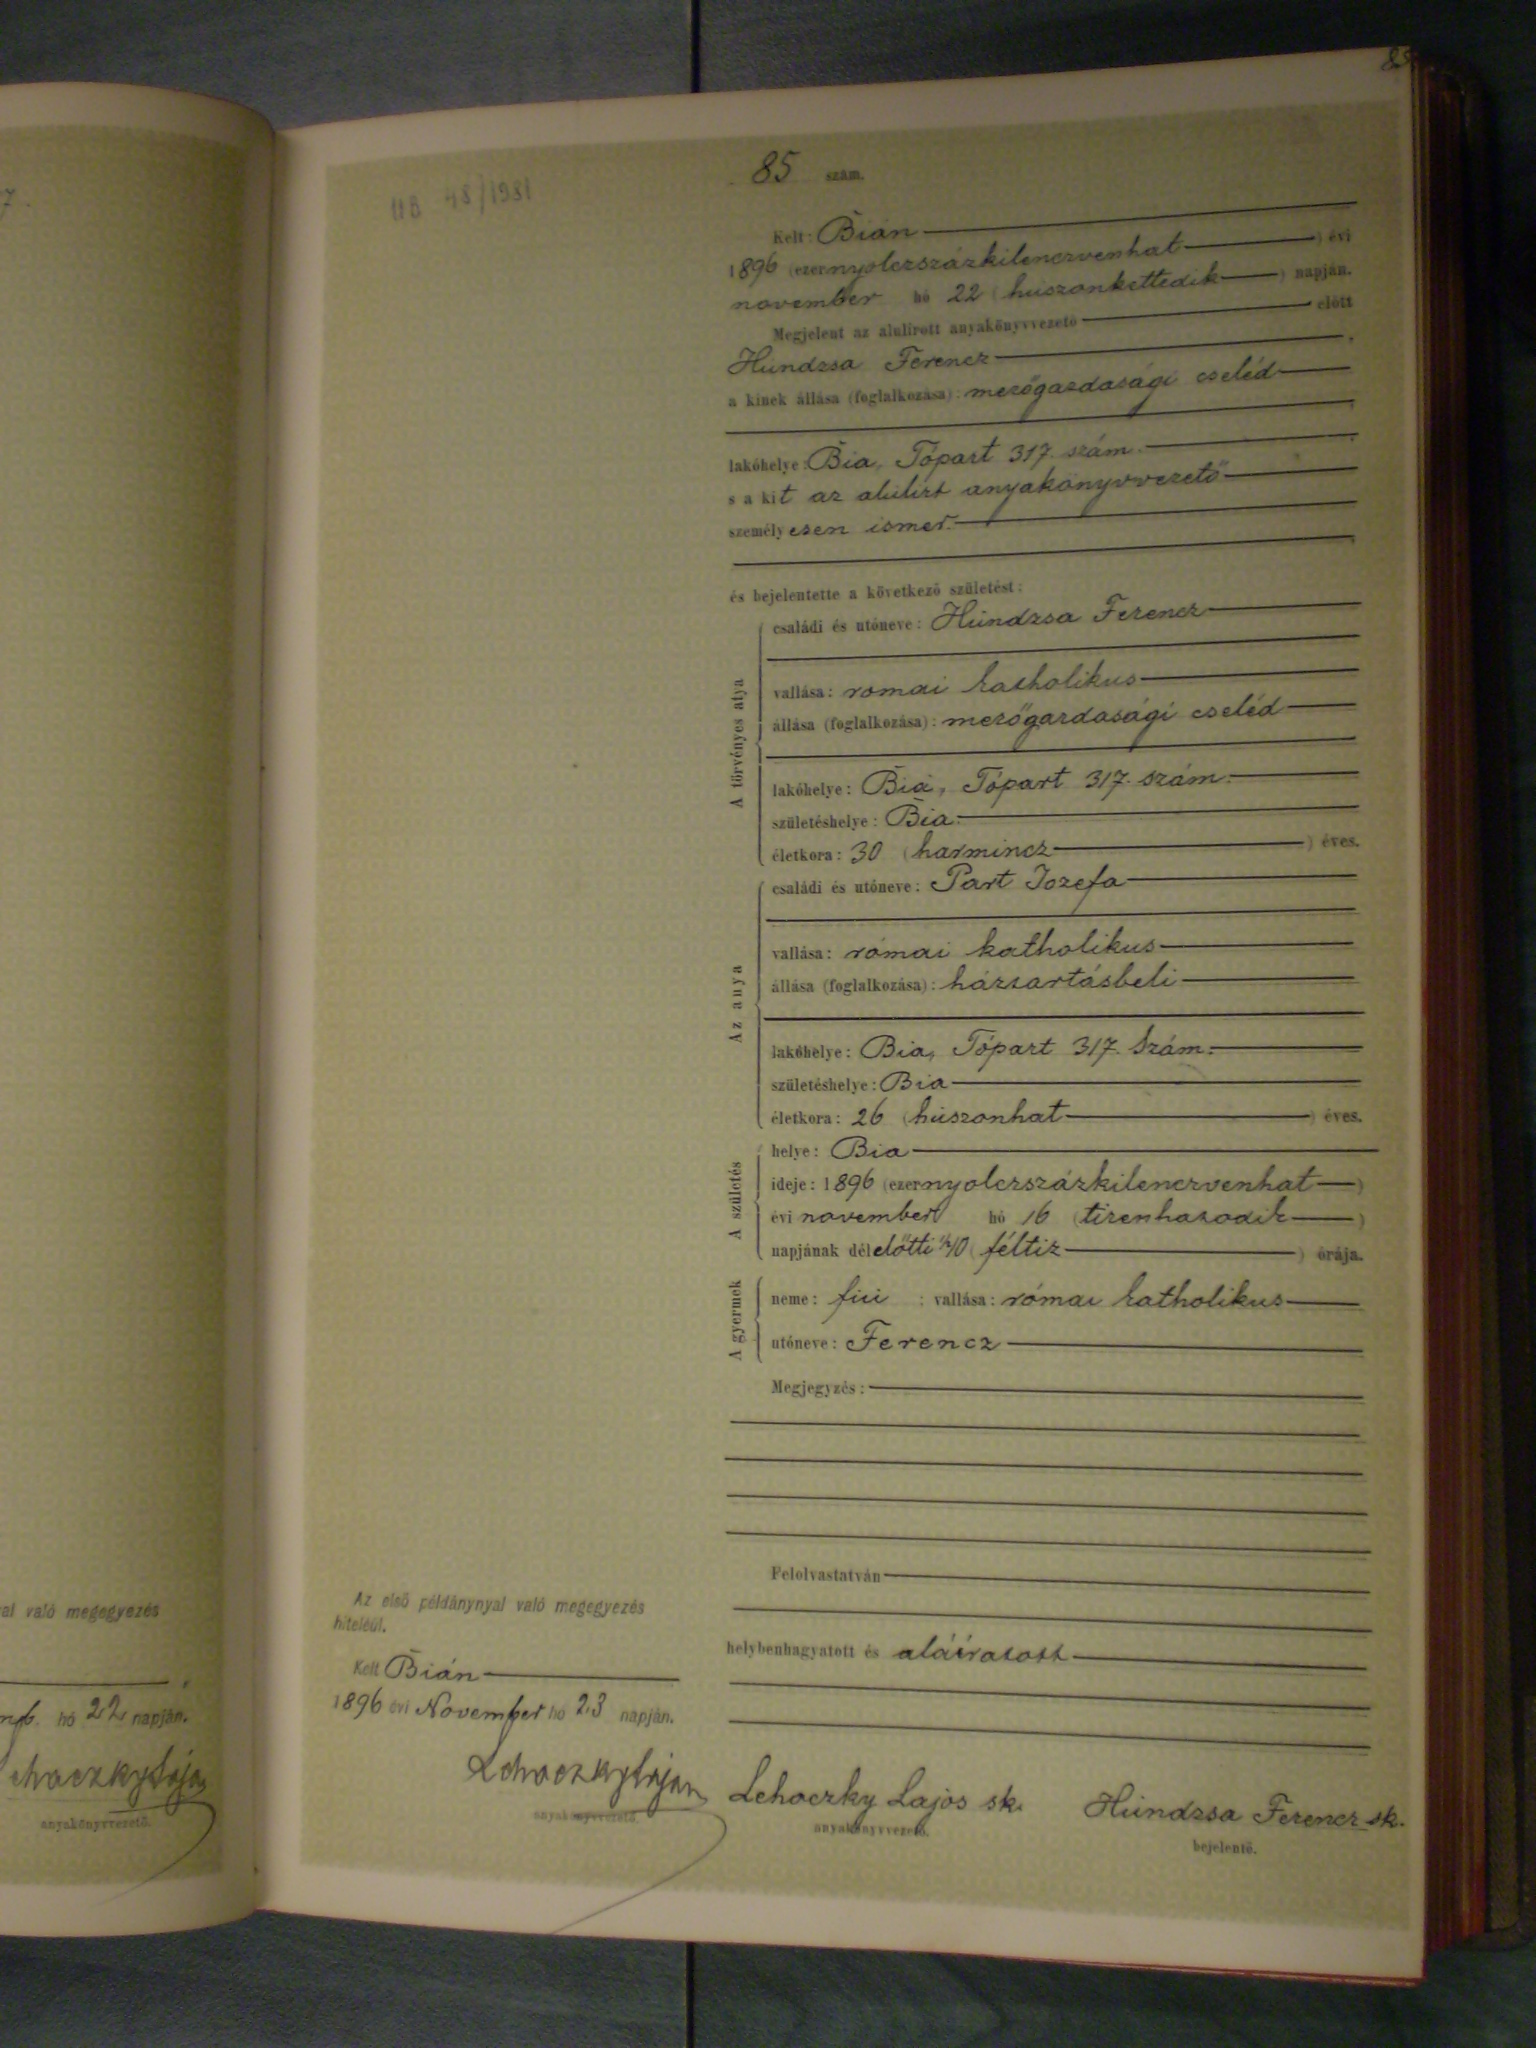 7.
85
UB 48/1981
85 szám.
Kelt: Bián
1896 (ezernyolczszázkilenczvenhat) évi
november hó 22 (huszonkettedik) napján.
Megjelent az alulírott anyakönyvvezető előtt
Hundzsa Ferencz,
a kinek állása (foglalkozása): mezőgazdasági cseléd
lakóhelye: Bia, Tópart 317. szám.
s a kit az alulírt anyakönyvvezető
személyesen ismer.
és bejelentette a következő születést:
A törvényes atya
családi és utóneve: Hundzsa Ferencz
vallása: romai katholikus
állása (foglalkozása): mezőgazdasági cseléd
lakóhelye: Bia, Tópart 317. szám.
születéshelye: Bia.
életkora: 30 (harmincz) éves.
Az anya
családi és utóneve: Part Jozefa
vallása: római katholikus
állása (foglalkozása): háztartásbeli
lakóhelye: Bia, Tópart 317. Szám.
születéshelye: Bia
életkora: 26 (huszonhat) éves.
A születés
helye: Bia
ideje: 1896 (ezernyolczszázkilenczvenhat)
évi november hó 16 (tizenhatodik)
napjának délelőtti ½10 (féltiz) órája.
A gyermek
neme: fiu; vallása: római katholikus
utóneve: Ferencz
Megjegyzés:
Felolvastatván
helybenhagyatott és aláíratott
Az első példánynyal való megegyezés
hiteléül.
Kelt Bián
1896 évi November hó 23 napján.
Lehoczky Lajos
anyakönyvvezető.
Lehoczky Lajos sk.
anyakönyvvezető.
Hundzsa Ferencz sk.
bejelentő.
való megegyezés
hó 22 napján.
anyakönyvvezető.